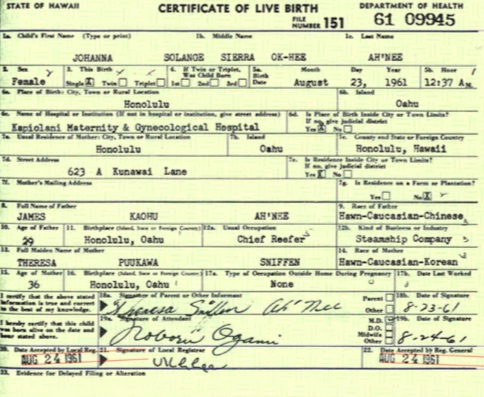 STATE OF HAWAII CERTIFICATE OF LIVE BIRTH DEPARTMENT OF HEALTH
FILE NUMBER 151 61 09945
1a. Child's First Name (Type or print) 1b. Middle Name 1c. Last Name
JOHANNA SOLANGE SIERRA OK-HEE AH'NEE
2. Sex 3. This Birth 4. If Twin or Triplet, Was Child Born 5a. Birth Date Month Day Year 5b. Hour
Female Single X Twin Triplet 1st 2nd 3rd August 23, 1961 12:37 A.M.
6a. Place of Birth: City, Town or Rural Location 6b. Island
Honolulu Oahu
6c. Name of Hospital or Institution (If not in hospital or institution, give street address) 6d. Is Place of Birth Inside City or Town Limits? If no, give judicial district
Kapiolani Maternity & Gynecological Hospital Yes X No
7a. Usual Residence of Mother: City, Town or Rural Location 7b. Island 7c. County and State or Foreign Country
Honolulu Oahu Honolulu, Hawaii
7d. Street Address 7e. Is Residence Inside City or Town Limits? If no, give judicial district
623 A Kunawai Lane Yes X No
7f. Mother's Mailing Address 7g. Is Residence on a Farm or Plantation?
Yes No X
8. Full Name of Father 9. Race of Father
JAMES KAOHU AH'NEE Hawn-Caucasian-Chinese
10. Age of Father 11. Birthplace (Island, State or Foreign Country) 12a. Usual Occupation 12b. Kind of Business or Industry
29 Honolulu, Oahu Chief Reefer Steamship Company
13. Full Maiden Name of Mother 14. Race of Mother
THERESA PUUKAWA SNIFFEN Hawn-Caucasian-Korean
15. Age of Mother 16. Birthplace (Island, State or Foreign Country) 17a. Type of Occupation Outside Home During Pregnancy 17b. Date Last Worked
36 Honolulu, Oahu None
I certify that the above stated information is true and correct to the best of my knowledge. 18a. Signature of Parent or Other Informant Parent Other 18b. Date of Signature
Theresa Sniffen Ah'Nee 8-23-61
I hereby certify that this child was born alive on the date and hour stated above. 19a. Signature of Attendant M.D. D.O. Midwife Other 19b. Date of Signature
Noboru Ogami 8-24-61
20. Date Accepted by Local Reg. 21. Signature of Local Registrar 22. Date Accepted by Reg. General
AUG 24 1961 AUG 24 1961
23. Evidence for Delayed Filing or Alteration